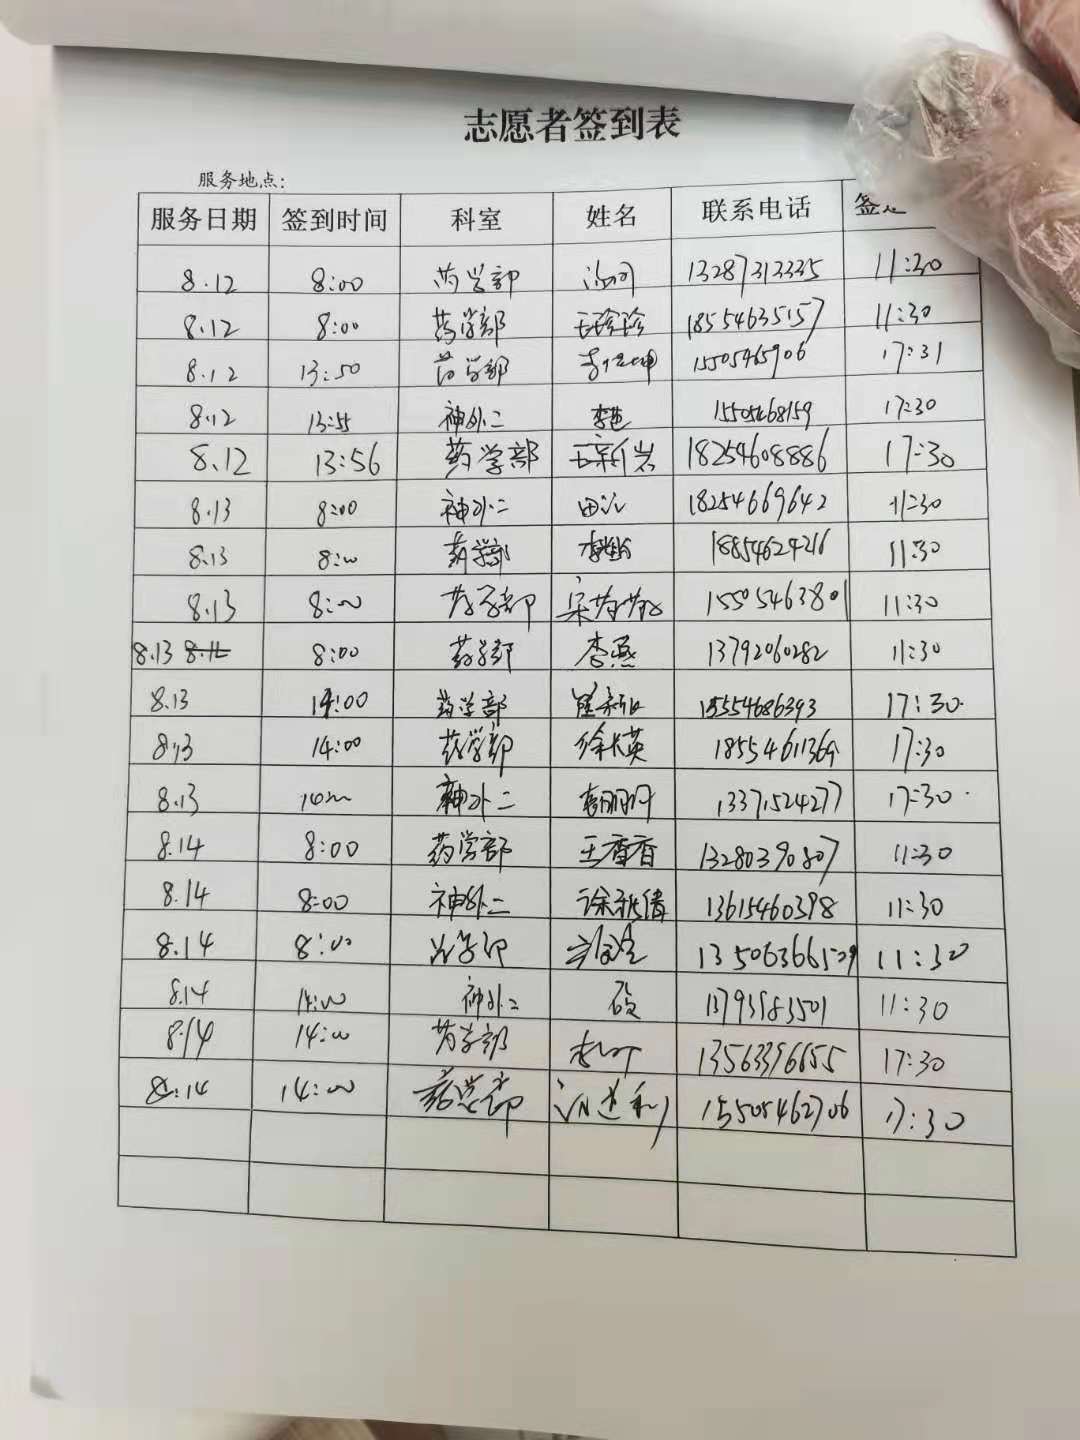 志愿者签到表
服务地点:
服务日期 签到时间 科室 姓名 联系电话
8.12 8:00 药学部 13287313335 11:30
8.12 8:00 药学部 王珍珍 18554635157 11:30
8.12 13:50 药学部 1550545906 17:31
8.12 13:55 神外二 李艳 15505468159 17:30
8.12 13:56 药学部 王新岩 18254608886 17:30
8.13 8:00 神外二 18254669642 11:30
8.13 8:00 药学部 18854624216 11:30
8.13 8:00 药学部 15505463801 11:30
8.13 8:00 药学部 李燕 13792060282 11:30
8.13 14:00 药学部 15554686393 17:30
8.13 14:00 药学部 徐长英 18554611369 17:30
8.13 神外二 13371524277 17:30
8.14 8:00 药学部 王香香 13280390807 11:30
8.14 8:00 神外二 13615460398 11:30
8.14 8:00 药学部 11:30
8.14 14:00 神外二 13793983501 11:30
8.14 14:00 药学部 13563396655 17:30
8.14 14:00 药学部 15505462706 17:30